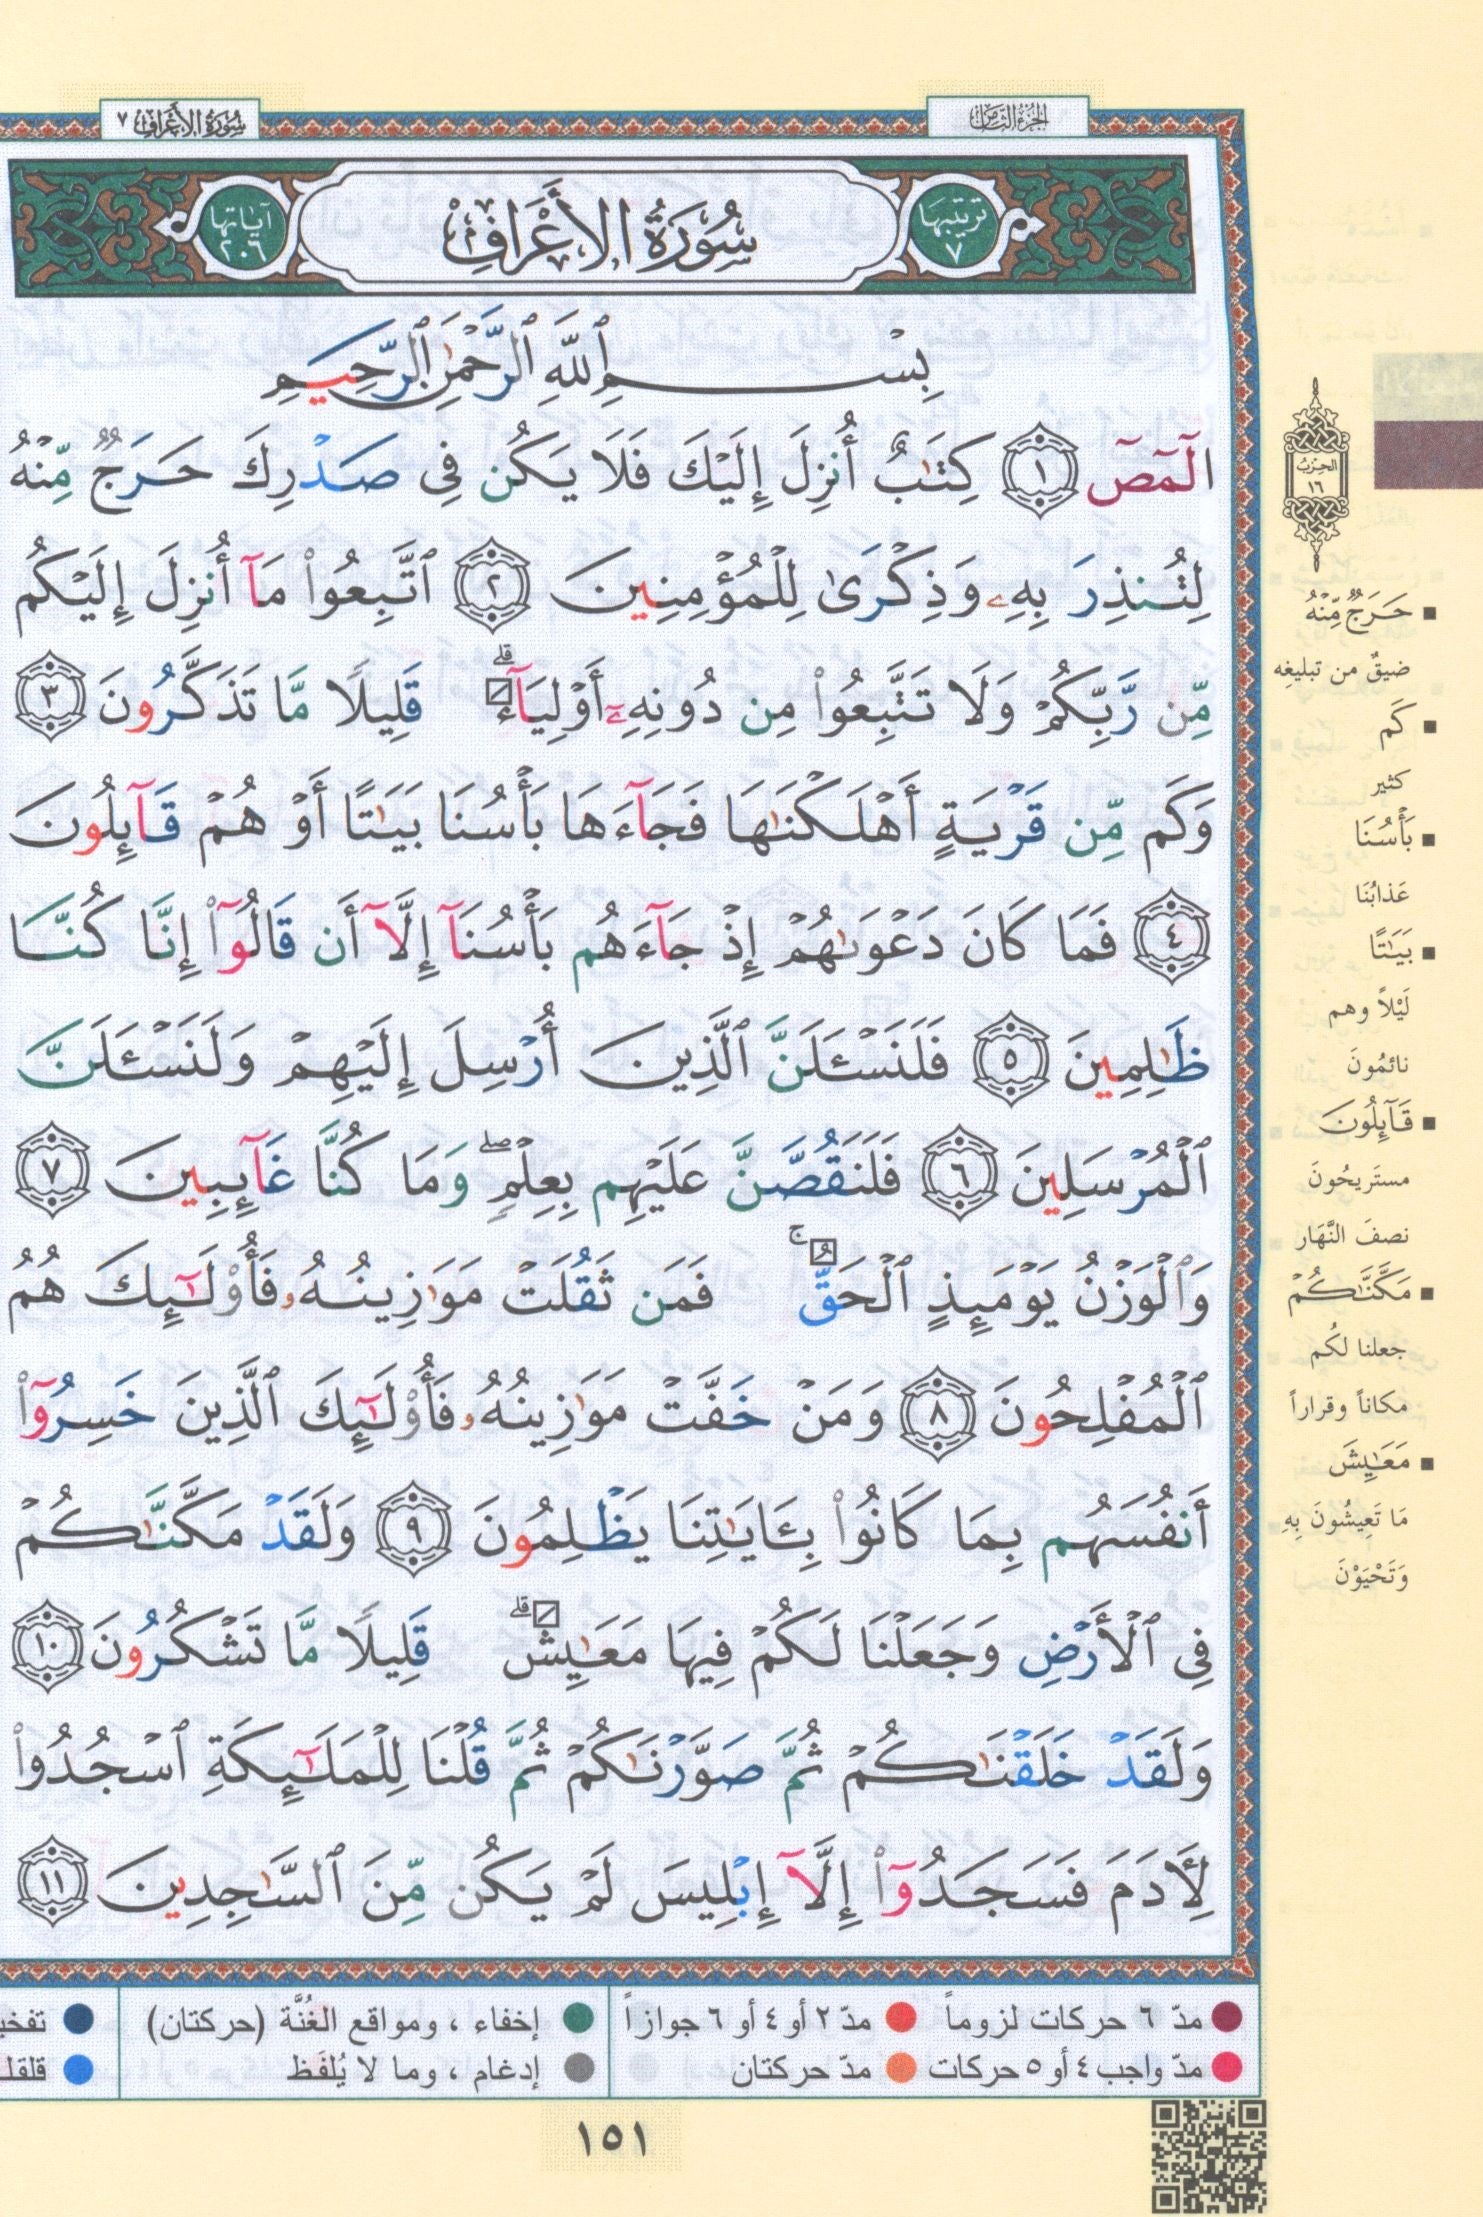 الجزء الثامن
سورة الأعراف ٧
ترتيبها ٧
سُورَةُ الأَعْرَافِ
آياتها ٢٠٦
بِسْمِ ٱللَّهِ ٱلرَّحْمَٰنِ ٱلرَّحِيمِ
الٓمٓصٓ ١ كِتَٰبٌ أُنزِلَ إِلَيْكَ فَلَا يَكُن فِى صَدْرِكَ حَرَجٌ مِّنْهُ
لِتُنذِرَ بِهِۦ وَذِكْرَىٰ لِلْمُؤْمِنِينَ ٢ ٱتَّبِعُوا۟ مَآ أُنزِلَ إِلَيْكُم
مِّن رَّبِّكُمْ وَلَا تَتَّبِعُوا۟ مِن دُونِهِۦٓ أَوْلِيَآءَ ۗ قَلِيلًا مَّا تَذَكَّرُونَ ٣
وَكَم مِّن قَرْيَةٍ أَهْلَكْنَٰهَا فَجَآءَهَا بَأْسُنَا بَيَٰتًا أَوْ هُمْ قَآئِلُونَ
٤ فَمَا كَانَ دَعْوَىٰهُمْ إِذْ جَآءَهُم بَأْسُنَآ إِلَّآ أَن قَالُوٓا۟ إِنَّا كُنَّا
ظَٰلِمِينَ ٥ فَلَنَسْـَٔلَنَّ ٱلَّذِينَ أُرْسِلَ إِلَيْهِمْ وَلَنَسْـَٔلَنَّ
ٱلْمُرْسَلِينَ ٦ فَلَنَقُصَّنَّ عَلَيْهِم بِعِلْمٍ ۖ وَمَا كُنَّا غَآئِبِينَ ٧
وَٱلْوَزْنُ يَوْمَئِذٍ ٱلْحَقُّ ۚ فَمَن ثَقُلَتْ مَوَٰزِينُهُۥ فَأُو۟لَٰٓئِكَ هُمُ
ٱلْمُفْلِحُونَ ٨ وَمَنْ خَفَّتْ مَوَٰزِينُهُۥ فَأُو۟لَٰٓئِكَ ٱلَّذِينَ خَسِرُوٓا۟
أَنفُسَهُم بِمَا كَانُوا۟ بِـَٔايَٰتِنَا يَظْلِمُونَ ٩ وَلَقَدْ مَكَّنَّٰكُمْ
فِى ٱلْأَرْضِ وَجَعَلْنَا لَكُمْ فِيهَا مَعَٰيِشَ ۗ قَلِيلًا مَّا تَشْكُرُونَ ١٠
وَلَقَدْ خَلَقْنَٰكُمْ ثُمَّ صَوَّرْنَٰكُمْ ثُمَّ قُلْنَا لِلْمَلَٰٓئِكَةِ ٱسْجُدُوا۟
لِـَٔادَمَ فَسَجَدُوٓا۟ إِلَّآ إِبْلِيسَ لَمْ يَكُن مِّنَ ٱلسَّٰجِدِينَ ١١
الحزب
١٦
▪ حَرَجٌ مِّنْهُ
ضيقٌ من تبليغِه
▪ كَم
كثير
▪ بَأْسُنَا
عَذابُنَا
▪ بَيَٰتًا
لَيْلاً وهم
نائمُونَ
▪ قَآئِلُونَ
مستَريحُونَ
نصفَ النَّهَار
▪ مَكَّنَّٰكُمْ
جعلنا لكُم
مكاناً وقراراً
▪ مَعَٰيِشَ
مَا تَعِيشُونَ بِهِ
وَتَحْيَوْنَ
● مدّ ٦ حركات لزوماً ● مدّ ٢ أو ٤ أو ٦ جوازاً ● إخفاء ، ومواقع الغُنَّة (حركتان)
● مدّ واجب ٤ أو ٥ حركات ● مدّ حركتان ● إدغام ، وما لا يُلفَظ
١٥١